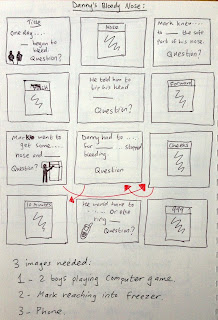 Danny's Bloody Nose:
Title
One day...
began to
bleed.
Question?
Nose
Mark knew...
to ___ the soft
part of his nose.
Question?
He told him to
his head
Question?
Forward
Mark went to
get some...
nose and
Question?
Danny had to ....
for ___ stopped
bleeding
Question
Cheeks
10 minutes
He would have to
... or else
ring
Question?
999
3 images needed.
1 - 2 boys playing computer game.
2 - Mark reaching into freezer.
3 - Phone.